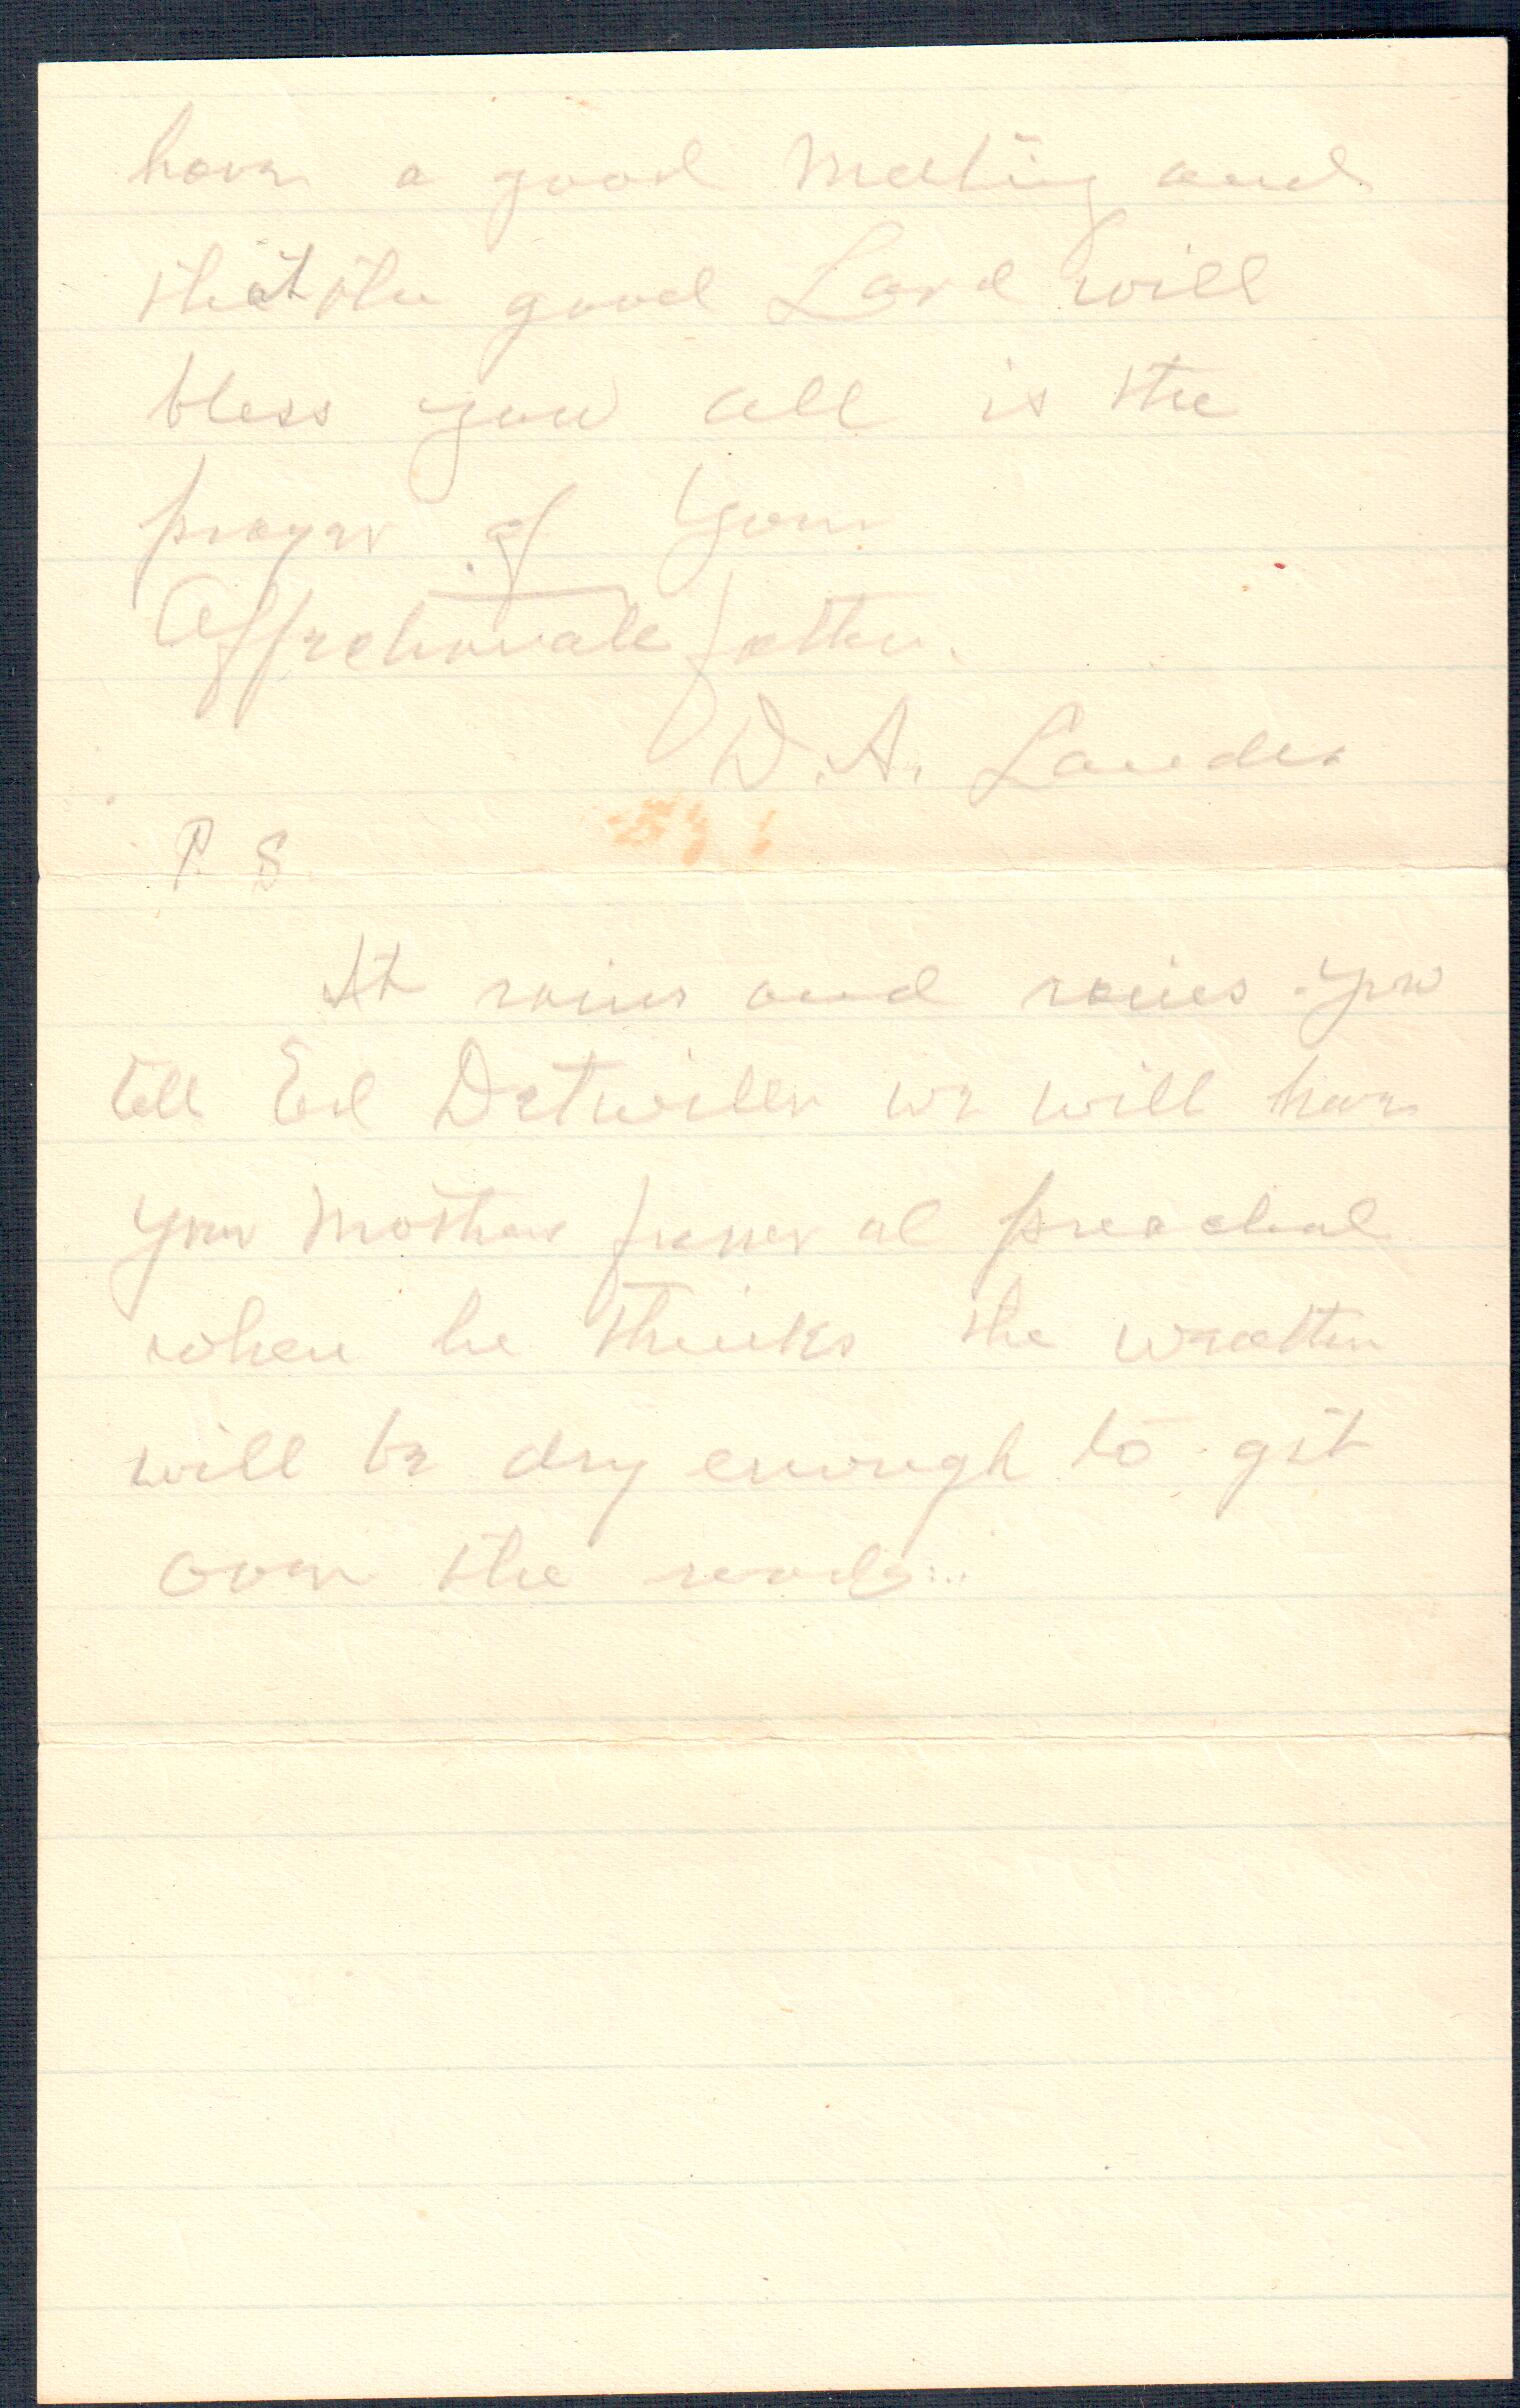 have a good Meeting and
that the good Lord will
bless you all is the
prayer of Your
Affectionate father.
D. A. Landes
P. S.
It rains and rains. you
tell Ed Detwiller we will have
your Mothers funer al preached
when he thinks the weather
will be dry enough to git
over the roads...